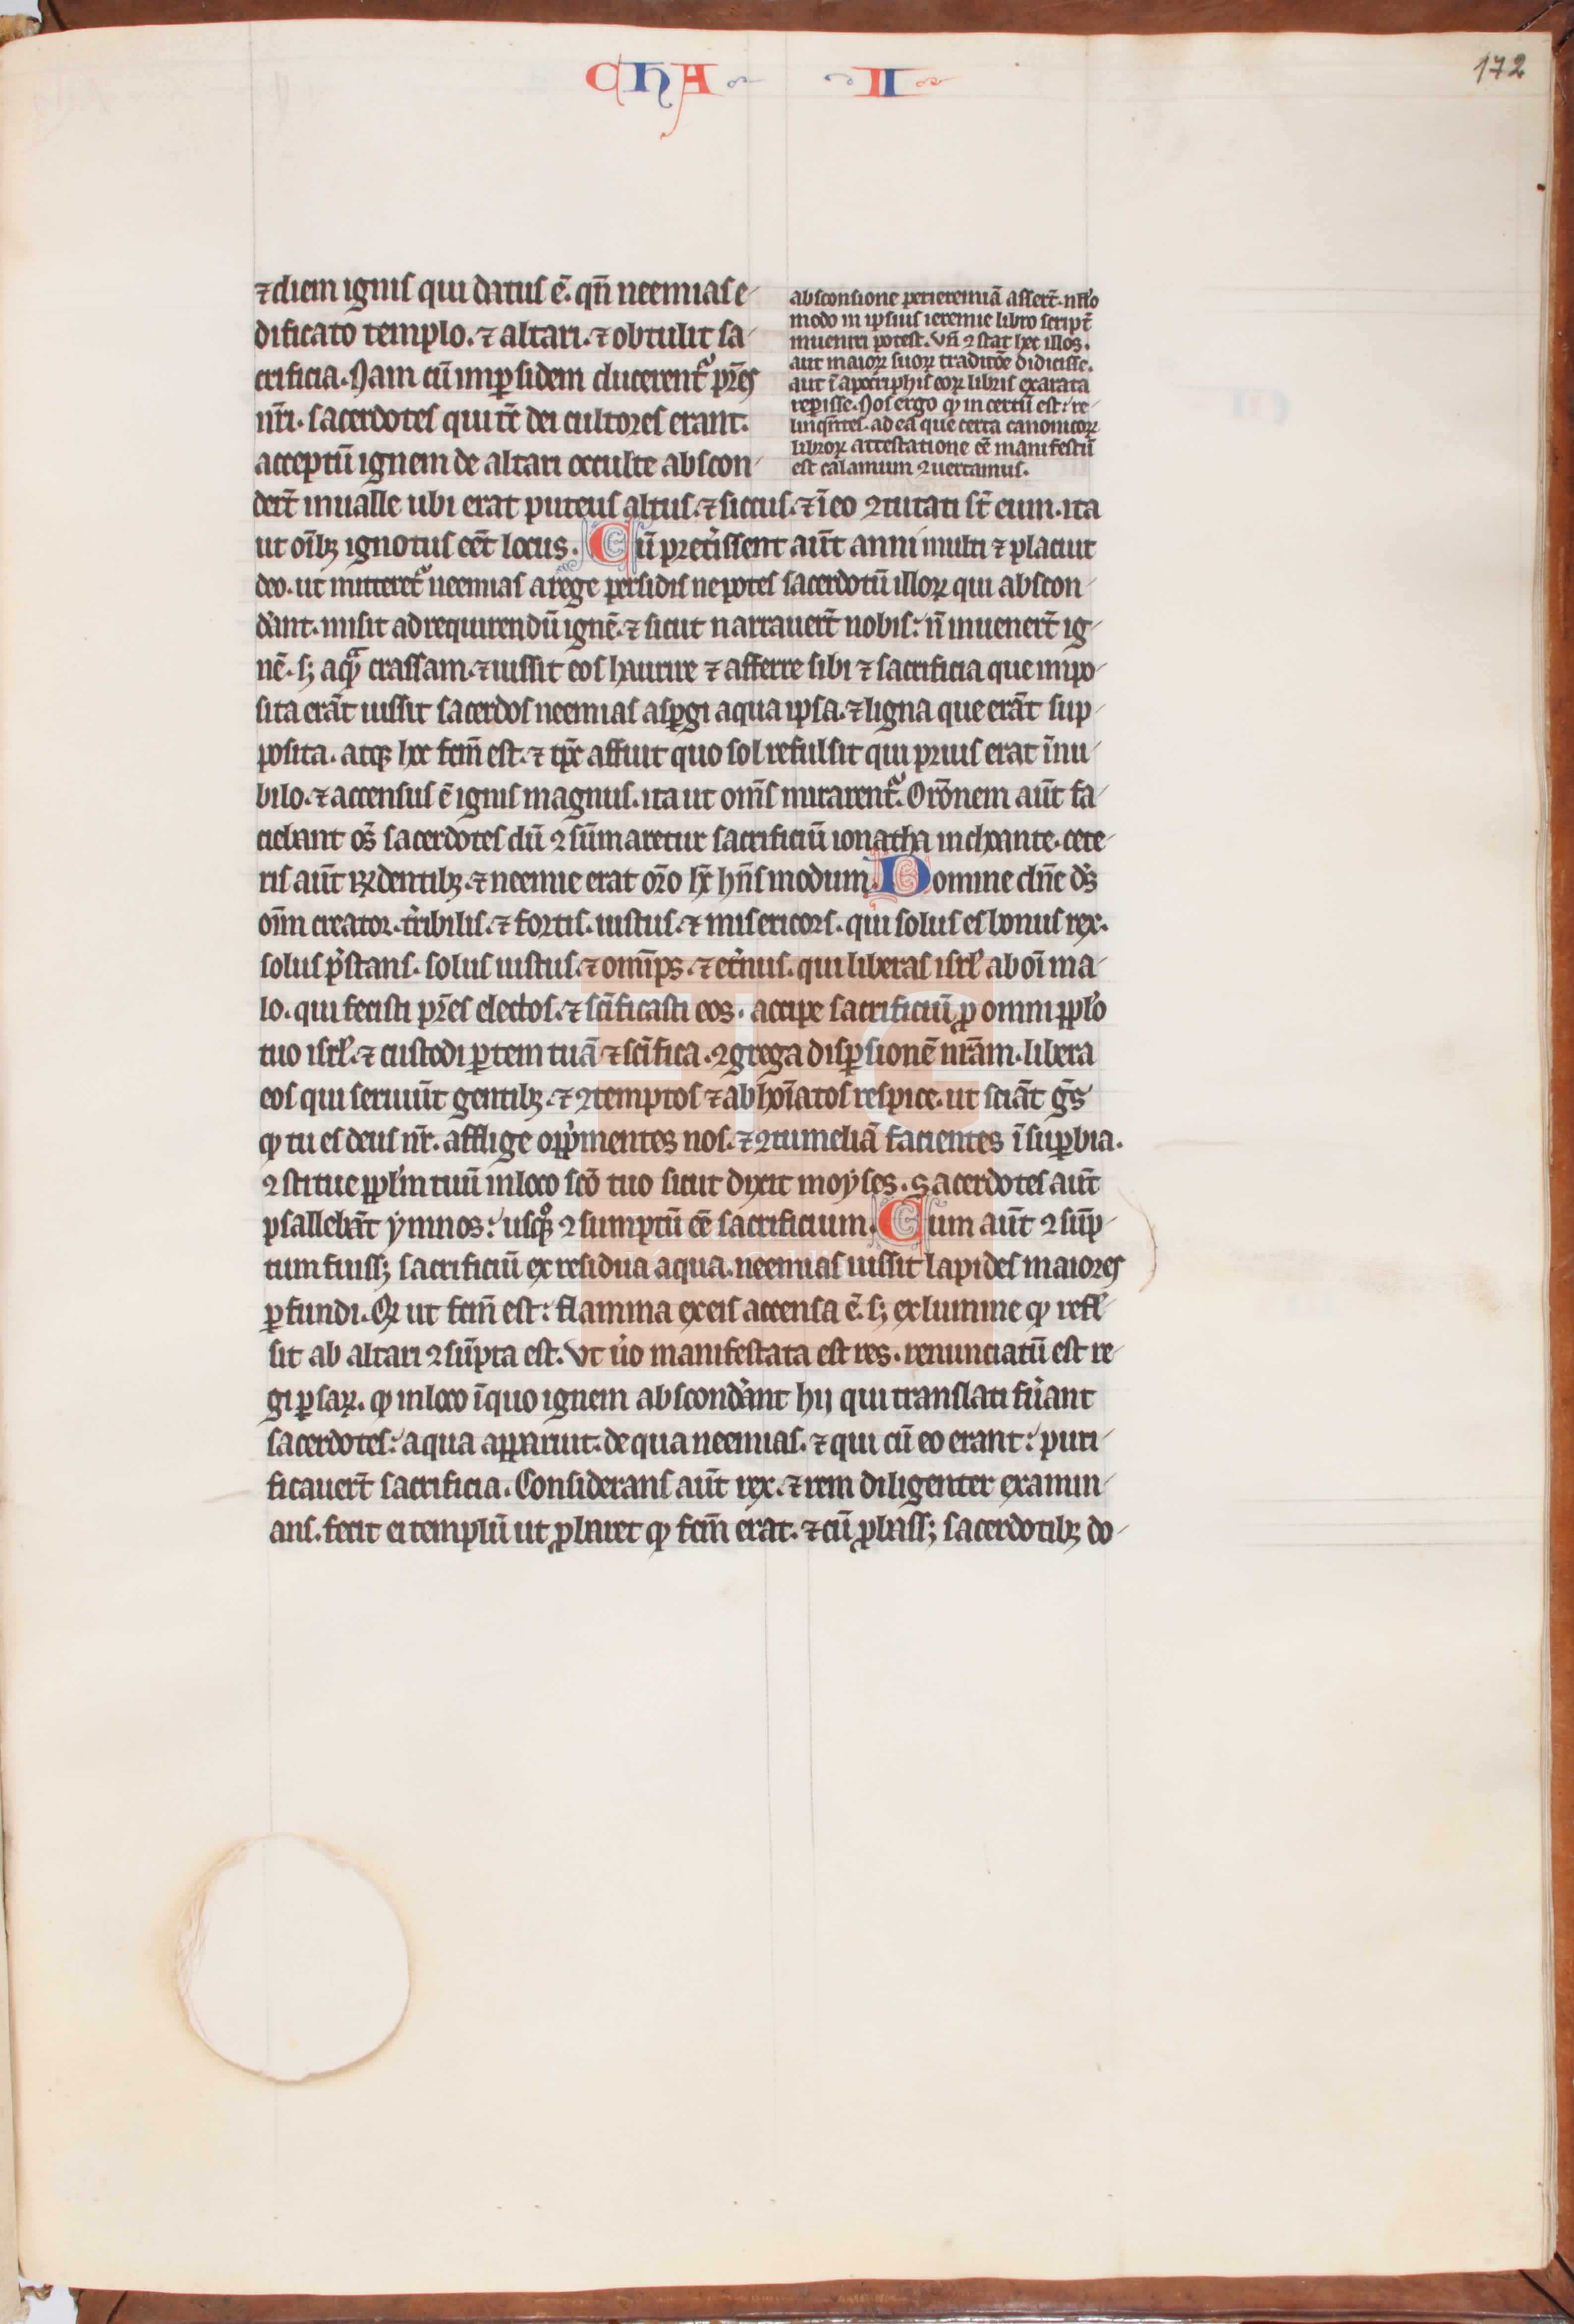 CHA II
172
⁊ diem ignis qui datus ē. qn̄ neemias e-
dificato templo. ⁊ altari. ⁊ obtulit sa-
crificia. Nam cū in ꝑsidem ducerent᷑ pr̄es
nr̄i. sacerdotes qui tc̄ dei cultores erant.
acceptū ignem de altari occulte abscon-
dert̄ in ualle ubi erat puteus altus. ⁊ siccus. ⁊ ī eo ꝯtutati st̄ eum. ita
ut oīb; ignotus eēt locus. Cū preti̓issent aūt anni multi ⁊ placuit
deo. ut mitteret᷑ neemias a rege persidis nepotes sacerdotū illoꝝ qui abscon-
d̓ant. misit ad requirendū ignē. ⁊ sicut narrauert̄ nobis: n̄ inuenert̄ ig-
nē. s; aqᷓ crassam. ⁊ iussit eos haurire ⁊ afferre sibi ⁊ sacrificia que impo-
sita erāt iussit sacerdos neemias asꝑgi aqua ipsa. ⁊ ligna que erāt sup-
posita. atqꝫ hec fcm̄ est. ⁊ tp̄c affuit quo sol refulsit qui prius erat ī nu-
bilo. ⁊ accensus ē ignis magnus. ita ut om̄s mirarent᷑. Orōnem aūt fa-
ciebant oēs sacerdotes dū ꝯsūmaretur sacrificiū ionatha inchoante. cete-
ris aūt rn̄dentib; ⁊ neemie erat orō hc̄ hn̄s modum. Domine dn̄e ds̄
oīm creator. tr̓ibilis. ⁊ fortis. iustus. ⁊ misericors. qui solus es bonus rex.
solus p̄stans. solus iustus. ⁊ omīps. ⁊ et̓nus. qui liberas isrl̓ ab oī ma-
lo. qui fecisti pr̄es electos. ⁊ scīficasti eos. accipe sacrificiū ꝓ omni ppl̓o
tuo isrl̓. ⁊ custodi ꝑtem tuā ⁊ scīfica. ꝯgrega disꝑsionē nr̄am. libera
eos qui seruiūt gentib;. ⁊ ꝯtemptos ⁊ abhoīatos respice. ut sciāt gn̄s
ꝙ tu es deus nr̄. afflige opp̓mentes nos. ⁊ ꝯtumeliā facientes ī suꝑbia.
ꝯstitue ppl̓m tuū in loco scō tuo sicut dixit moyses. Sacerdotes aūt
psallebāt ymnos: usqꝫ ꝯsumptū eē sacrificium. Cum aūt ꝯsūp-
tum fuiss; sacrificiū ex residua aqua. neemias iussit lapides maiores
ꝑfundi. Qꝫ ut fcm̄ est: flamma ex eis accensa ē. s; ex lumine ꝙ reful̓-
sit ab altari ꝯsūpta est. Vt u̓o manifestata est res. renunciatū est re-
gi ꝑsaꝝ. ꝙ in loco ī quo ignem abscond̓ant hij qui translati fu̓ant
sacerdotes: aqua apparuit. de qua neemias. ⁊ qui cū eo erant: puri-
ficauert̄ sacrificia. Considerans aūt rex. ⁊ rem diligenter examin-
ans. fecit ei templū ut ꝓbaret ꝙ fcm̄ erat. ⁊ cū ꝓbass; sacerdotib; do-
absconsione per ieremiā assert̄. nll̓o
modo in ipsius ieremie libro script̄
inueniri potest. Vn̄ ꝯstat hec illos.
aut maioꝝ suoꝝ traditōe didicisse.
aut ī apocriphis eoꝝ libris exarata
rep̱isse. Nos ergo ꝙ incertū est: re-
linqn̄tes. ad ea que certa canonicoꝝ
libroꝝ attestatione eē manifestū
est calamum ꝯuertamus.